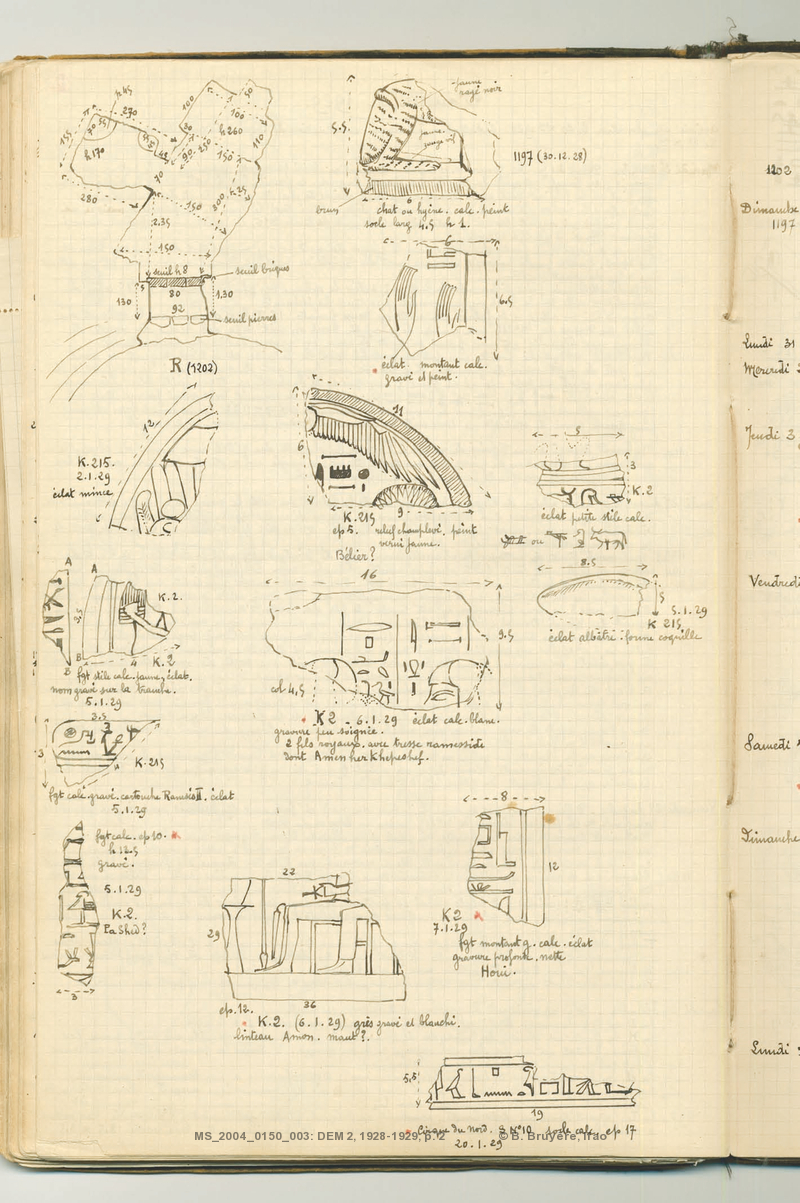 h 45
270
100
50
155
30
55
100
h 260
110
h 170
150
280
150
300
h 25
2,35
150
seuil h 8
seuil briques
130
80
1,30
92
seuil pierres
R (1202)
jaune
rayé noir
5.5
1197 (30.12.28)
brun
chat ou hyène. calc. peint
socle larg 4.5 h 1.
6
6.5
éclat. montant calc.
gravé et peint.
12
K. 215.
2.1.29
éclat mince
11
6
9
K. 215
ep 5. relief champlevé, peint
verni jaune.
Bélier?
8
3
K. 2
éclat petite stèle calc.
ou
A
A
K. 2.
B
B
4
K. 2
fgt stèle calc. jaune, éclat.
nom gravé sur la tranche.
5.1.29
16
9.5
col 4,5
K 2 - 6.1.29 éclat calc. blanc.
gravure peu soignée.
2 fils royaux avec tresse ramesside
dont Amen her Khepeshef.
8.5
5
5.1.29
K 215
éclat albâtre : forme coquille
3.5
3
K. 215
fgt calc. gravé. cartouche Ramsès II. éclat
5.1.29
fgt calc. ep 10.
h 12.5
gravé.
5.1.29
K. 2.
Pa Shed?
3
22
29
36
ep. 12.
K. 2. (6.1.29) grès gravé et blanchi.
linteau Amon. maut?.
8
12
K 2
7.1.29
fgt montant g. calc. éclat
gravure profonde, nette
Houi.
5,5
19
Cirque du nord. S N° 10 socle calc. ep 17
20.1.29
MS_2004_0150_003: DEM 2, 1928-1929, p. 2 © B. Bruyère, Ifao
1202
Dimanche
1197
Lundi 31
Mercredi 2
Jeudi 3
Vendredi
Samedi
Dimanche
Lundi